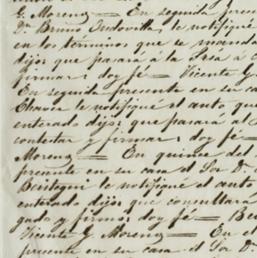 G. Moreno — En seguida prese
D. Bruno Sudovilla, le notifiqué
en los terminos que se manda
dijo: que pasará á la Sría á c
firmar; doy fé — Vicente G
En seguida presente en su ca
Chavez le notifiqué el auto que
enterado dijo: que pasará al
contestar y firmar; doy fé —
Moreno — En quince del
presente en su casa el Sor D.
Beistegui le notifiqué el auto
enterado dijo: que consultara
gado y firmó: doy fé — Bei
Vicente G. Moreno — En el
presente en su casa el Sor D.